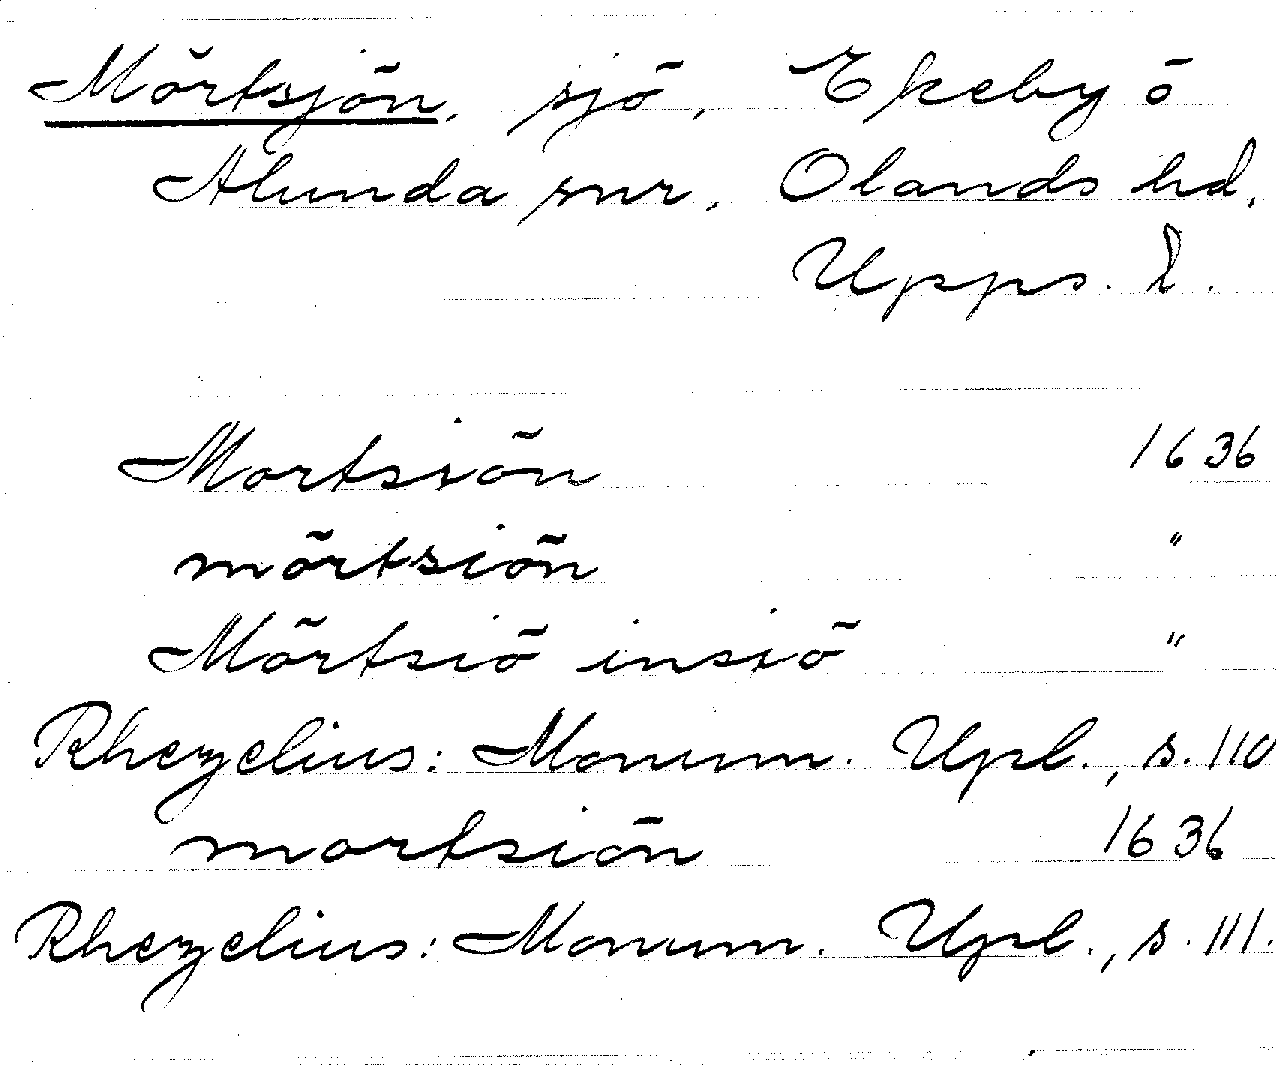 Mörtsjön, sjö, Ekeby ō
Alunda snr, Olands hd,
Upps. l.
Mortsiön 1636
mörtsiön "
Mörtsiö insiö "
Rhezelius: Monum. Upl., s. 110
mortsiön 1636
Rhezelius: Monum. Upl., s. 111.